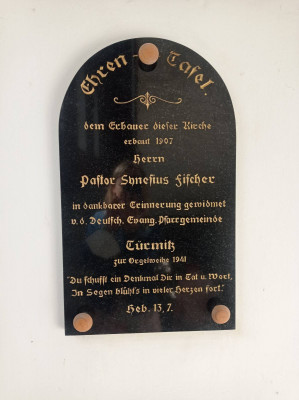 Ehren-Tafel.
dem Erbauer dieser Kirche
erbaut 1907
Herrn
Pastor Synesius Fischer
in dankbarer Erinnerung gewidmet
v. d. Deutsch. Evang. Pfarrgemeinde
Türmitz
zur Orgelweihe 1941
"Du schufst ein Denkmal Dir in Tat u. Wort,
In Segen blüht's in vieler Herzen fort."
Heb. 13, 7.